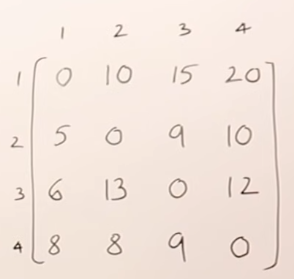 1 2 3 4
1 0 10 15 20
2 5 0 9 10
3 6 13 0 12
4 8 8 9 0